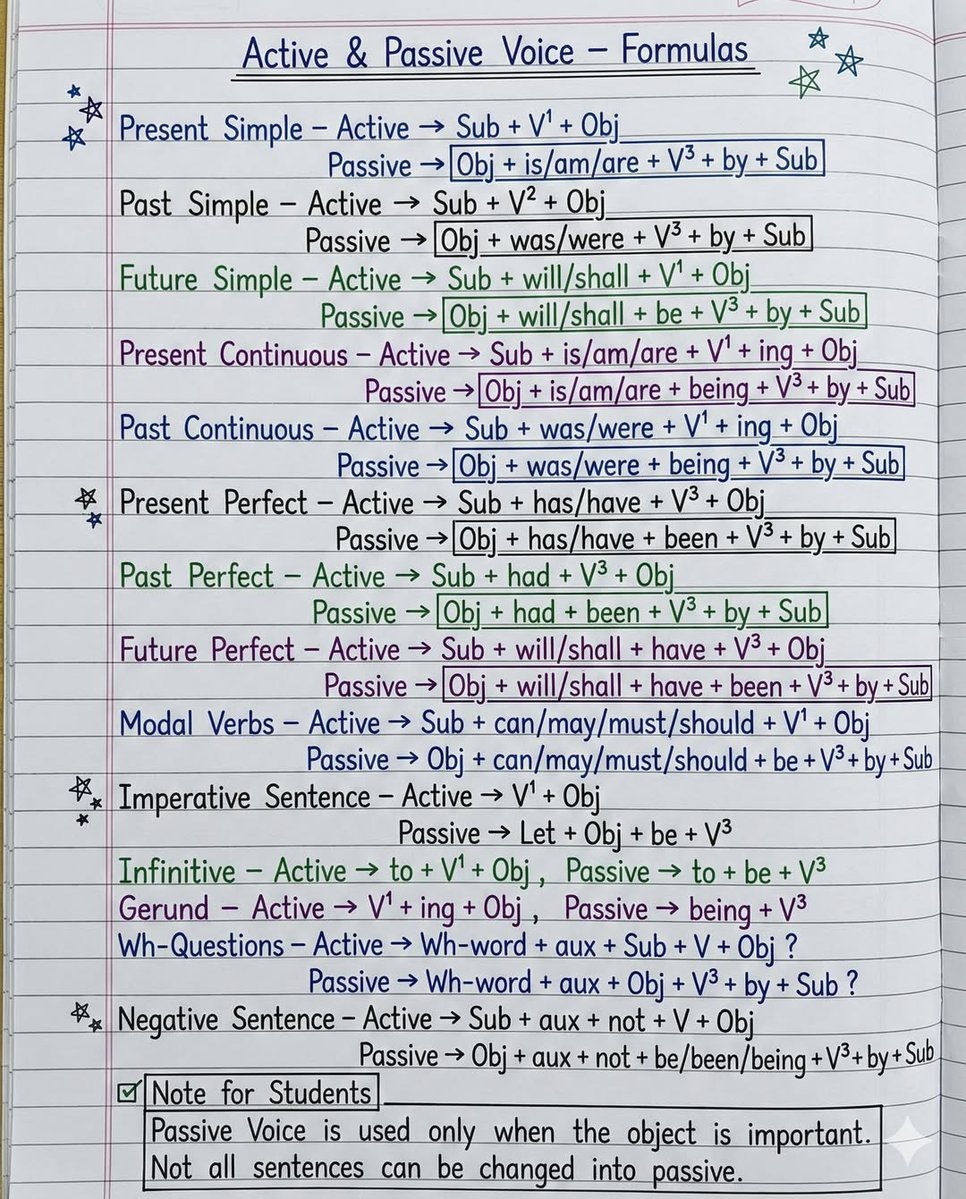 Active & Passive Voice – Formulas
Present Simple – Active → Sub + V¹ + Obj
Passive → Obj + is/am/are + V³ + by + Sub
Past Simple – Active → Sub + V² + Obj
Passive → Obj + was/were + V³ + by + Sub
Future Simple – Active → Sub + will/shall + V¹ + Obj
Passive → Obj + will/shall + be + V³ + by + Sub
Present Continuous – Active → Sub + is/am/are + V¹ + ing + Obj
Passive → Obj + is/am/are + being + V³ + by + Sub
Past Continuous – Active → Sub + was/were + V¹ + ing + Obj
Passive → Obj + was/were + being + V³ + by + Sub
Present Perfect – Active → Sub + has/have + V³ + Obj
Passive → Obj + has/have + been + V³ + by + Sub
Past Perfect – Active → Sub + had + V³ + Obj
Passive → Obj + had + been + V³ + by + Sub
Future Perfect – Active → Sub + will/shall + have + V³ + Obj
Passive → Obj + will/shall + have + been + V³ + by + Sub
Modal Verbs – Active → Sub + can/may/must/should + V¹ + Obj
Passive → Obj + can/may/must/should + be + V³ + by + Sub
Imperative Sentence – Active → V¹ + Obj
Passive → Let + Obj + be + V³
Infinitive – Active → to + V¹ + Obj , Passive → to + be + V³
Gerund – Active → V¹ + ing + Obj , Passive → being + V³
Wh-Questions – Active → Wh-word + aux + Sub + V + Obj ?
Passive → Wh-word + aux + Obj + V³ + by + Sub ?
Negative Sentence – Active → Sub + aux + not + V + Obj
Passive → Obj + aux + not + be/been/being + V³ + by + Sub
Note for Students
Passive Voice is used only when the object is important.
Not all sentences can be changed into passive.